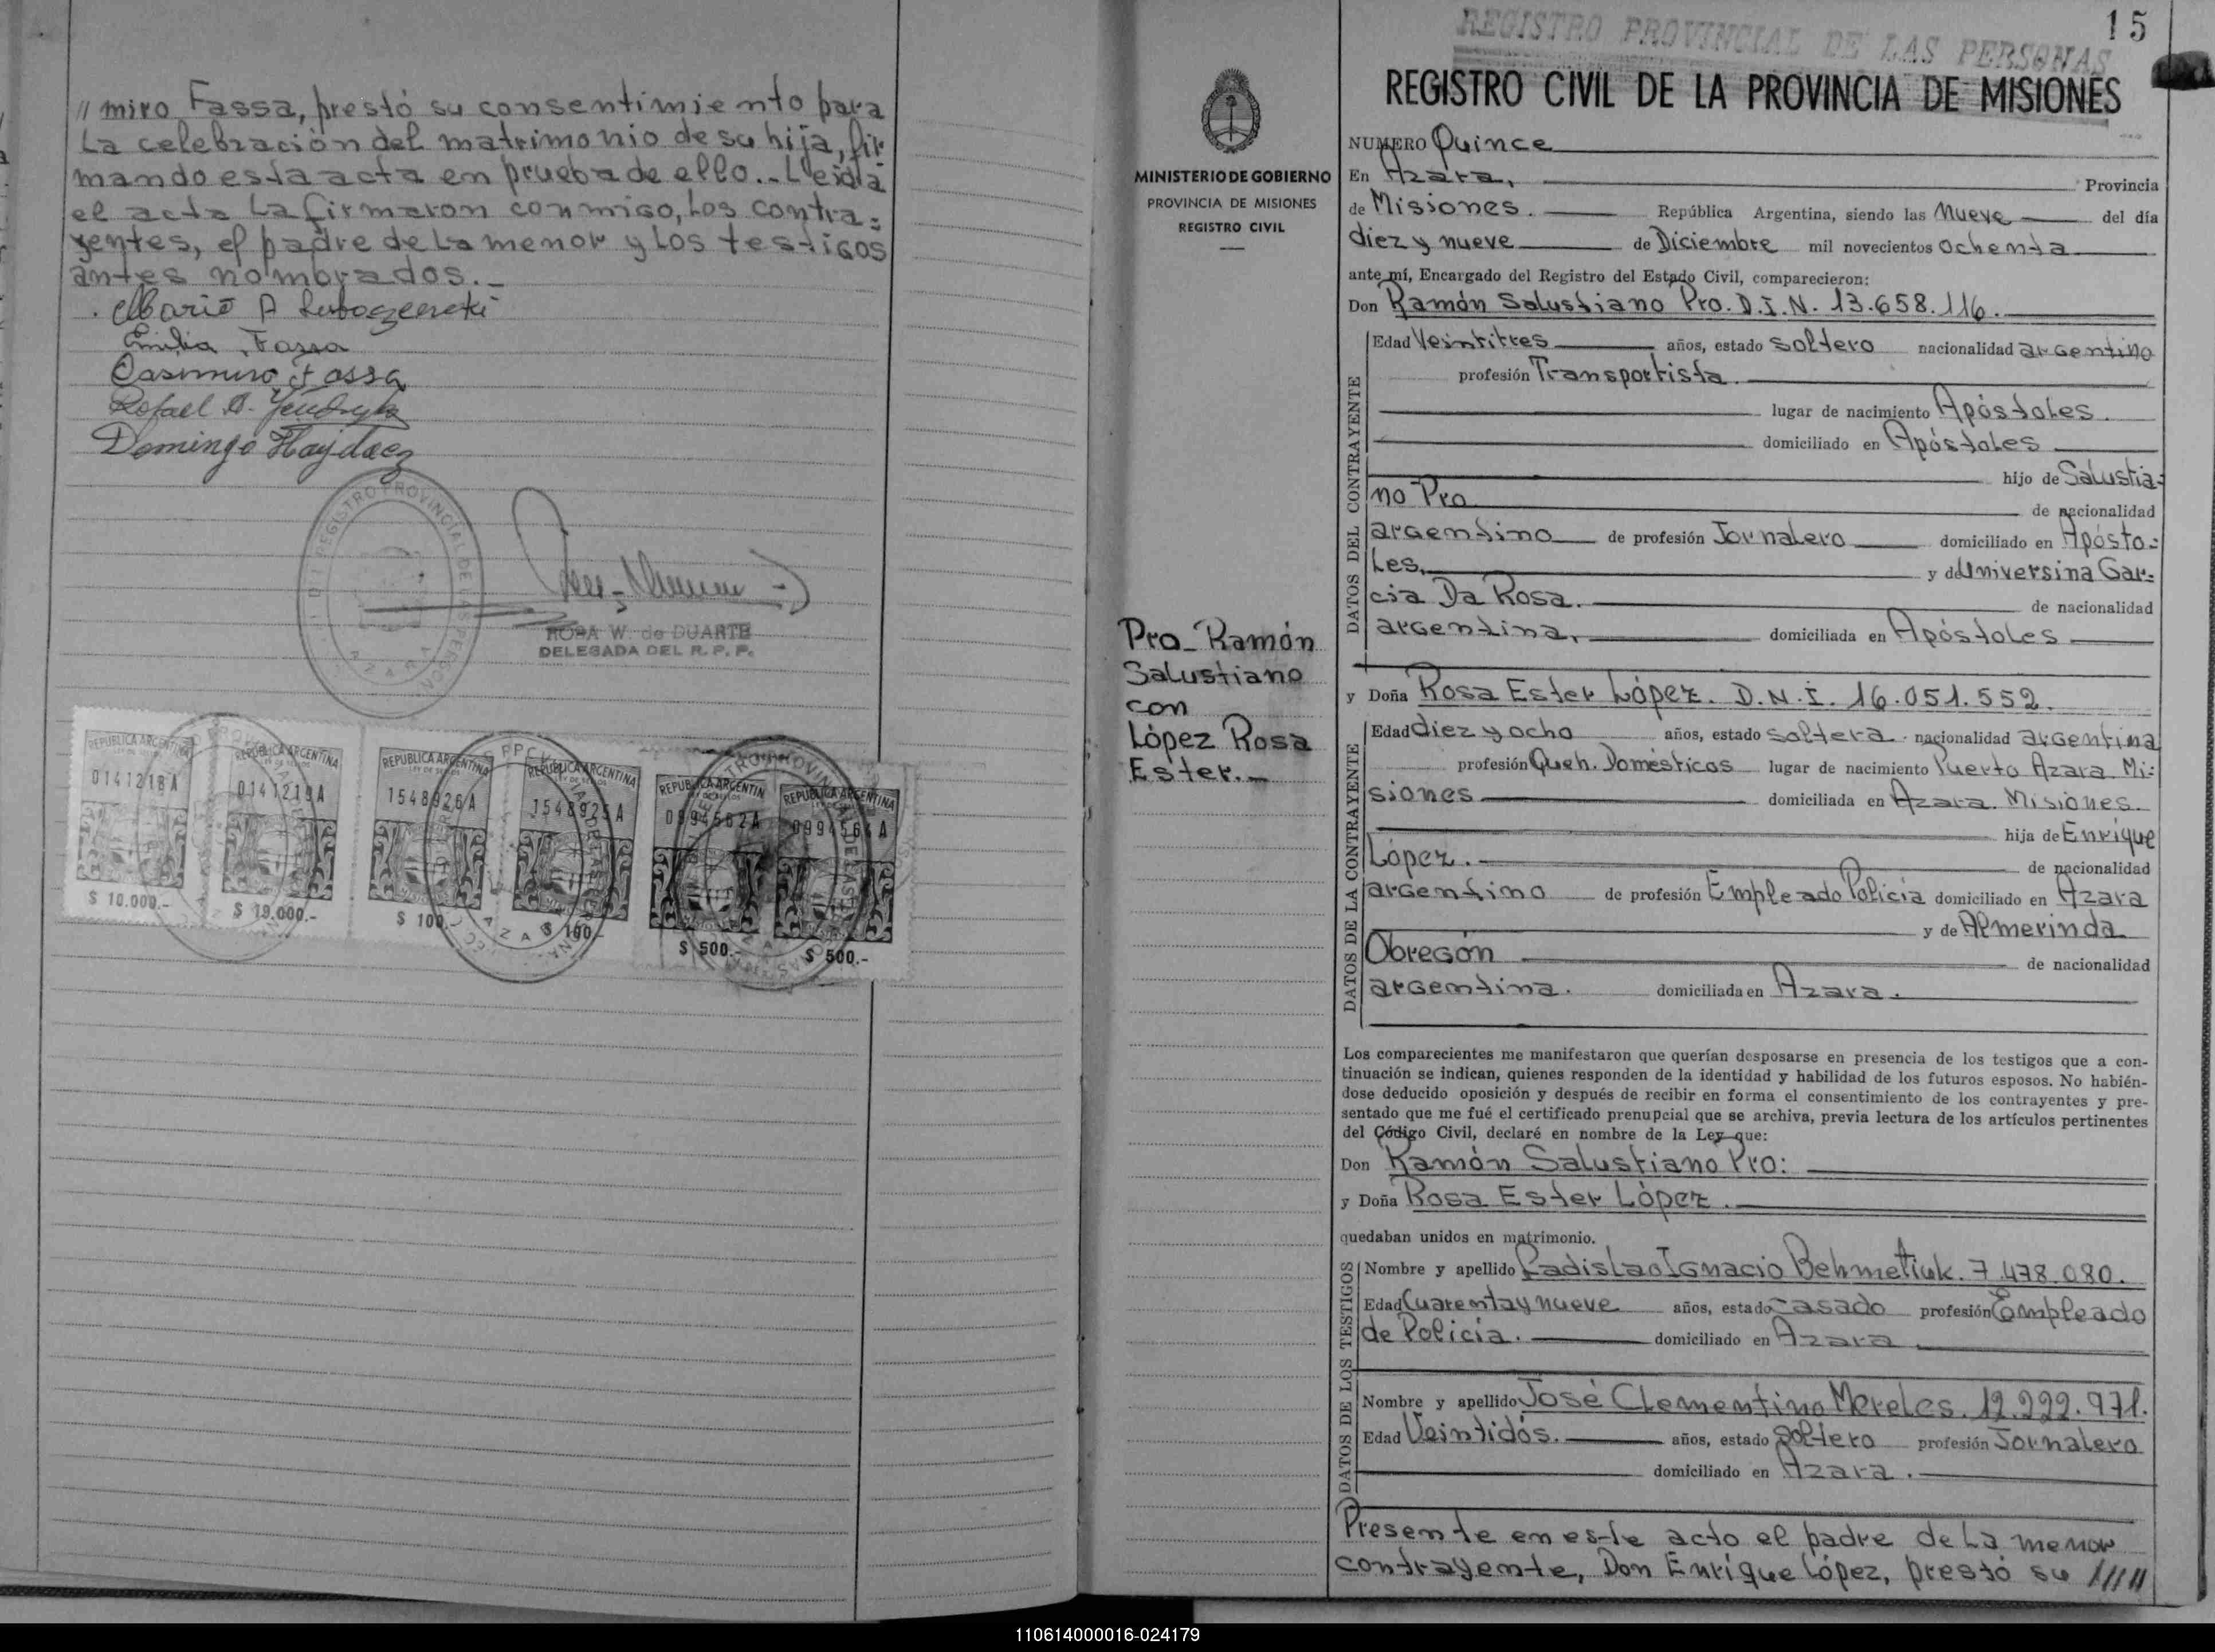 // miro Fassa, prestó su consentimiento para
La celebración del matrimonio de su hija, fir
mando esta acta en prueba de ello.. Leida
el acta La firmaron conmigo, Los contra=
yentes, el padre de La menor y Los testigos
antes nombrados._
Emilia Fassa
Casimiro Fassa
Rafael A.
Domingo Haydacz
REGISTRO PROVINCIAL DE LAS PERSONAS
AZARA
ROSA W. de DUARTE
DELEGADA DEL R. P. P.
REPUBLICA ARGENTINA
0141218A
$ 10.000.-
REPUBLICA ARGENTINA
0141219A
$ 10.000.-
REPUBLICA ARGENTINA
LEY DE SELLOS
1548926A
$ 100
REPUBLICA ARGENTINA
1548925A
$ 100.-
REPUBLICA ARGENTINA
0994562A
$ 500.-
REPUBLICA ARGENTINA
$ 500.-
MINISTERIO DE GOBIERNO
PROVINCIA DE MISIONES
REGISTRO CIVIL
Pro_ Ramón
Salustiano
con
López Rosa
Ester._
15
REGISTRO PROVINCIAL DE LAS PERSONAS
REGISTRO CIVIL DE LA PROVINCIA DE MISIONES
NUMERO Quince
En Azara, Provincia
de Misiones. República Argentina, siendo las Nueve del día
diez y nueve de Diciembre mil novecientos ochenta
ante mí, Encargado del Registro del Estado Civil, comparecieron:
Don Ramón Salustiano Pro. D.I.N. 13.658.116.
DATOS DEL CONTRAYENTE
Edad Veintitres años, estado soltero nacionalidad argentino
profesión Transportista.
lugar de nacimiento Apóstoles.
domiciliado en Apóstoles
hijo de Salustia=
no Pro de nacionalidad
argentino de profesión Jornalero domiciliado en Apósto=
Les. y de Universina Gar=
cia Da Rosa. de nacionalidad
argentina, domiciliada en Apóstoles
y Doña Rosa Ester López. D.N.I. 16.051.552.
DATOS DE LA CONTRAYENTE
Edad diez y ocho años, estado soltera. nacionalidad argentina
profesión Queh. Domésticos lugar de nacimiento Puerto Azara Mi=
siones domiciliada en Azara. Misiones.
hija de Enrique
López. de nacionalidad
argentino de profesión Empleado Policía domiciliado en Azara
y de Almerinda
Obregón de nacionalidad
argentina. domiciliada en Azara.
Los comparecientes me manifestaron que querían desposarse en presencia de los testigos que a con-
tinuación se indican, quienes responden de la identidad y habilidad de los futuros esposos. No habién-
dose deducido oposición y después de recibir en forma el consentimiento de los contrayentes y pre-
sentado que me fué el certificado prenupcial que se archiva, previa lectura de los artículos pertinentes
del Código Civil, declaré en nombre de la Ley que:
Don Ramón Salustiano Pro:
y Doña Rosa Ester López.
quedaban unidos en matrimonio.
DATOS DE LOS TESTIGOS
Nombre y apellido Ladislao Ignacio Behmetiuk. 7.478.080.
Edad Cuarenta y nueve años, estado casado profesión Empleado
de Policía. domiciliado en Azara
Nombre y apellido José Clementino Mereles. 12.222.971.
Edad Veintidós. años, estado soltero profesión Jornalero
domiciliado en Azara.
Presente en este acto el padre de La menor
contrayente, Don Enrique López, prestó su /////
110614000016-024179